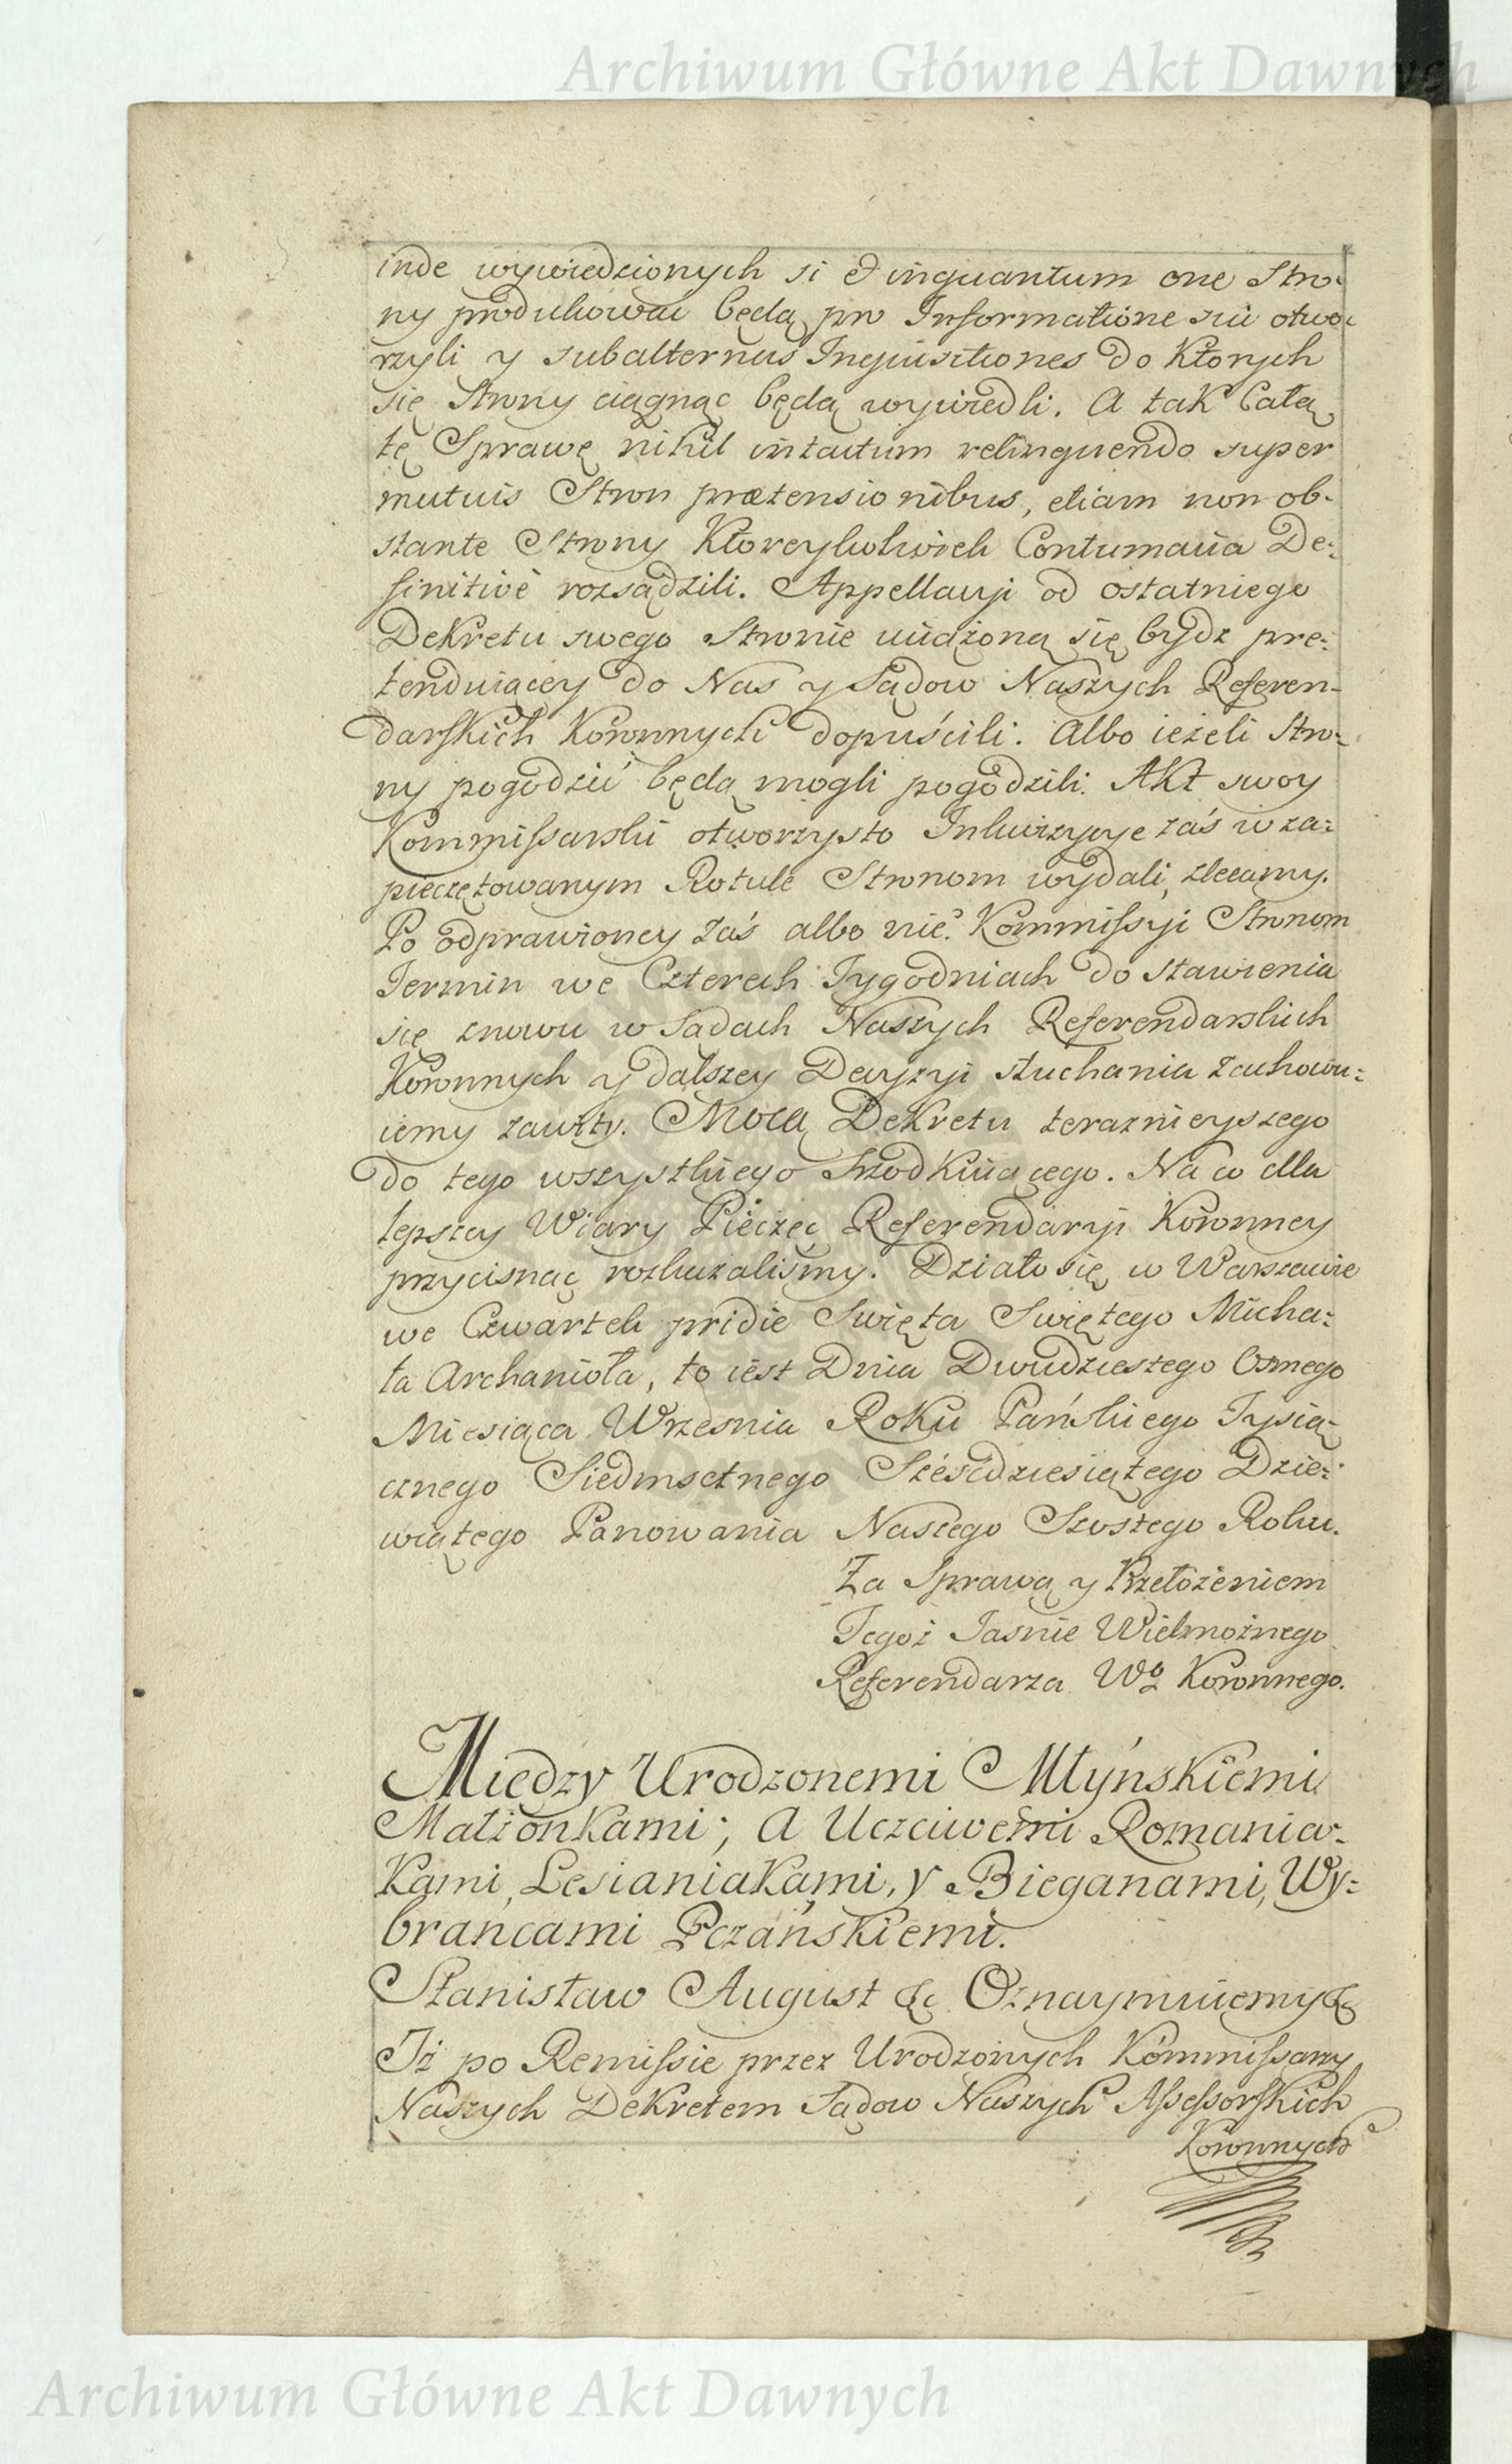 Archiwum Główne Akt Dawnych
inde wywiedzionych si & inquantum one Stro-
ny produkować będą pro Informatione sui otwo-
rzyli y subalternas Inquisitiones do Ktorych
się Strony ciągnąc będą wywiedli. A tak Całą
tę Sprawę nihil intactum relinquendo super
mutuis Stron prætensionibus, etiam non ob-
stante Strony Ktoreykolwiek Contumacia De-
finitivè rozsądzili. Appellacyi od ostatniego
Dekretu swego Stronie uciążoną się bydz pre-
tenduiącey do Nas y Sądow Naszych Referen-
darskich Koronnych dopuścili. Albo ieżeli Stro-
ny pogodzić będą mogli pogodzili. Akt swoy
Kommissarski otworzysto Inkwizycye zaś w za-
pieczętowanym Rotule Stronom wydali, zlecamy.
Po odprawioney zaś albo nie? Kommissyi Stronom
Termin we Czterech Tygodniach do stawienia
się znowu w Sądach Naszych Referendarskich
Koronnych y dalszey Decyzyi słuchania zachowu-
iemy zawity. Mocą Dekretu teraznieyszego
do tego wszystkiego Srzodkuiącego. Na co dla
lepszey Wiary Pieczęć Referendaryi Koronney
przycisnąć rozkazaliśmy. Działo się w Warszawie
we Czwartek pridie Swięta Swiętego Micha-
ła Archanioła, to iest Dnia Dwudziestego Osmego
Miesiąca Wrzesnia Roku Pańskiego Tysią-
cznego Siedmsetnego Sześćdziesiątego Dzie-
wiątego Panowania Naszego Szostego Roku.
Za Sprawą y Przełożeniem
Tegoż Jasnie Wielmożnego
Referendarza Wo Koronnego.
Między Urodzonemi Młyńskiemi
Małżonkami; A Uczciwemi Romania-
kami, Lesianiakami, y Bieganami, Wy-
brancami Pczańskiemi.
Stanisław August &c Oznaymuiemy &
Iż po Remissie przez Urodzonych Kommissarzy
Naszych Dekretem Sądow Naszych Assessorskich
Koronnych
Archiwum Główne Akt Dawnych